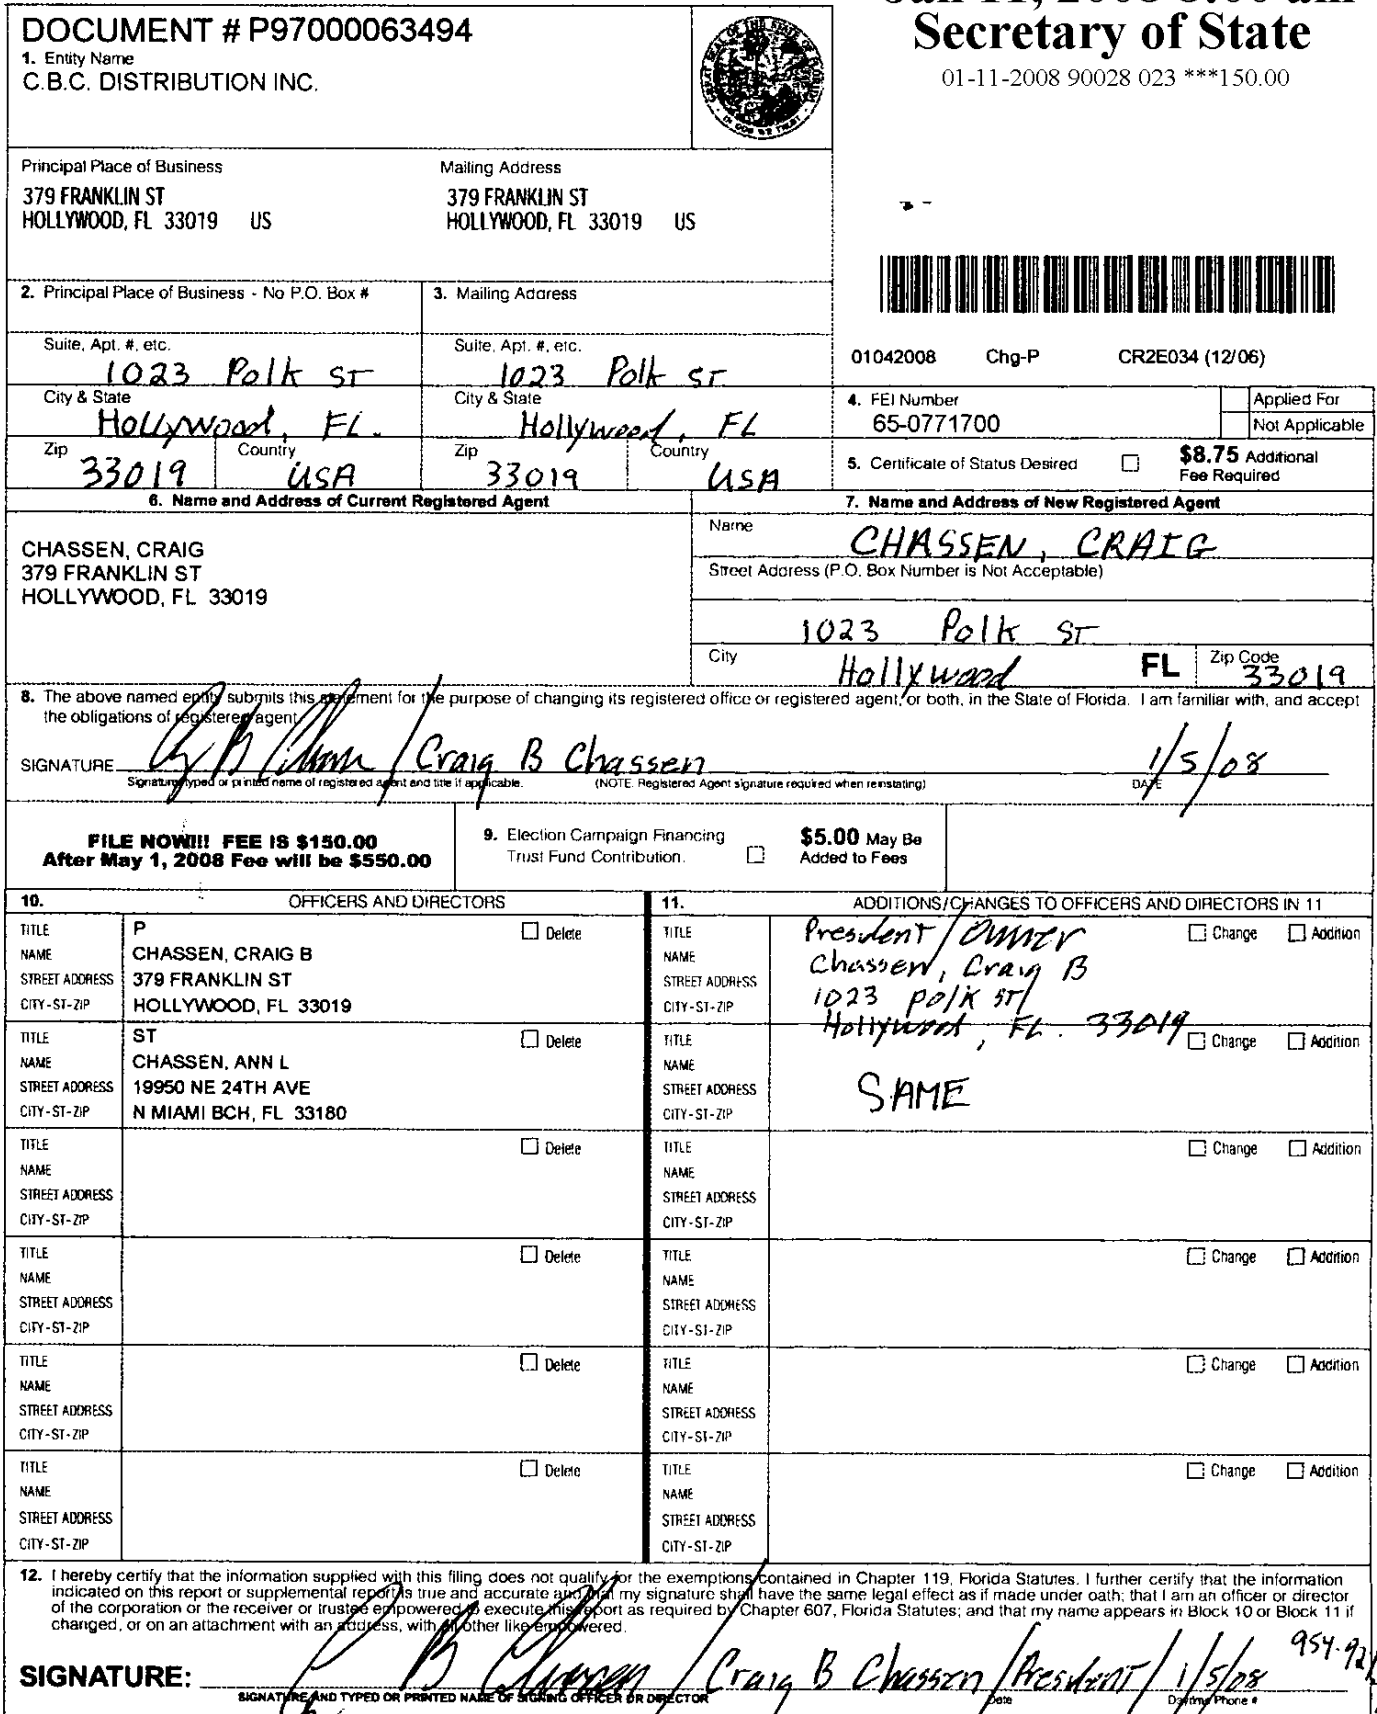 DOCUMENT # P97000063494
1. Entity Name
C.B.C. DISTRIBUTION INC.
Secretary of State
01-11-2008 90028 023 ***150.00
Principal Place of Business
379 FRANKLIN ST
HOLLYWOOD, FL 33019 US
Mailing Address
379 FRANKLIN ST
HOLLYWOOD, FL 33019 US
2. Principal Place of Business - No P.O. Box #
3. Mailing Address
Suite, Apt. #, etc.
1023 Polk ST
Suite, Apt. #, etc.
1023 Polk ST
City & State
Hollywood, FL.
City & State
Hollywood, FL
Zip
33019
Country
USA
Zip
33019
Country
USA
01042008 Chg-P CR2E034 (12/06)
4. FEI Number
65-0771700
Applied For
Not Applicable
5. Certificate of Status Desired
$8.75 Additional
Fee Required
6. Name and Address of Current Registered Agent
CHASSEN, CRAIG
379 FRANKLIN ST
HOLLYWOOD, FL 33019
7. Name and Address of New Registered Agent
Name
CHASSEN, CRAIG
Street Address (P.O. Box Number is Not Acceptable)
1023 Polk ST
City
Hollywood
FL
Zip Code
33019
8. The above named entity submits this statement for the purpose of changing its registered office or registered agent, or both, in the State of Florida. I am familiar with, and accept
the obligations of registered agent.
SIGNATURE
Craig B Chassen
1/5/08
Signature, typed or printed name of registered agent and title if applicable.
(NOTE: Registered Agent signature required when reinstating)
DATE
FILE NOW!!! FEE IS $150.00
After May 1, 2008 Fee will be $550.00
9. Election Campaign Financing
Trust Fund Contribution.
$5.00 May Be
Added to Fees
10. OFFICERS AND DIRECTORS
TITLE P Delete
NAME CHASSEN, CRAIG B
STREET ADDRESS 379 FRANKLIN ST
CITY-ST-ZIP HOLLYWOOD, FL 33019
TITLE ST Delete
NAME CHASSEN, ANN L
STREET ADDRESS 19950 NE 24TH AVE
CITY-ST-ZIP N MIAMI BCH, FL 33180
TITLE Delete
NAME
STREET ADDRESS
CITY-ST-ZIP
TITLE Delete
NAME
STREET ADDRESS
CITY-ST-ZIP
TITLE Delete
NAME
STREET ADDRESS
CITY-ST-ZIP
TITLE Delete
NAME
STREET ADDRESS
CITY-ST-ZIP
11. ADDITIONS/CHANGES TO OFFICERS AND DIRECTORS IN 11
TITLE President/Owner Change Addition
NAME Chassen, Craig B
STREET ADDRESS 1023 Polk ST
CITY-ST-ZIP Hollywood, FL. 33019
TITLE Change Addition
NAME
STREET ADDRESS SAME
CITY-ST-ZIP
TITLE Change Addition
NAME
STREET ADDRESS
CITY-ST-ZIP
TITLE Change Addition
NAME
STREET ADDRESS
CITY-ST-ZIP
TITLE Change Addition
NAME
STREET ADDRESS
CITY-ST-ZIP
TITLE Change Addition
NAME
STREET ADDRESS
CITY-ST-ZIP
12. I hereby certify that the information supplied with this filing does not qualify for the exemptions contained in Chapter 119, Florida Statutes. I further certify that the information
indicated on this report or supplemental report is true and accurate and that my signature shall have the same legal effect as if made under oath; that I am an officer or director
of the corporation or the receiver or trustee empowered to execute this report as required by Chapter 607, Florida Statutes; and that my name appears in Block 10 or Block 11 if
changed, or on an attachment with an address, with all other like empowered.
954-92
SIGNATURE: Craig B Chassen/President/1/5/08
SIGNATURE AND TYPED OR PRINTED NAME OF SIGNING OFFICER OR DIRECTOR
Date
Daytime Phone #